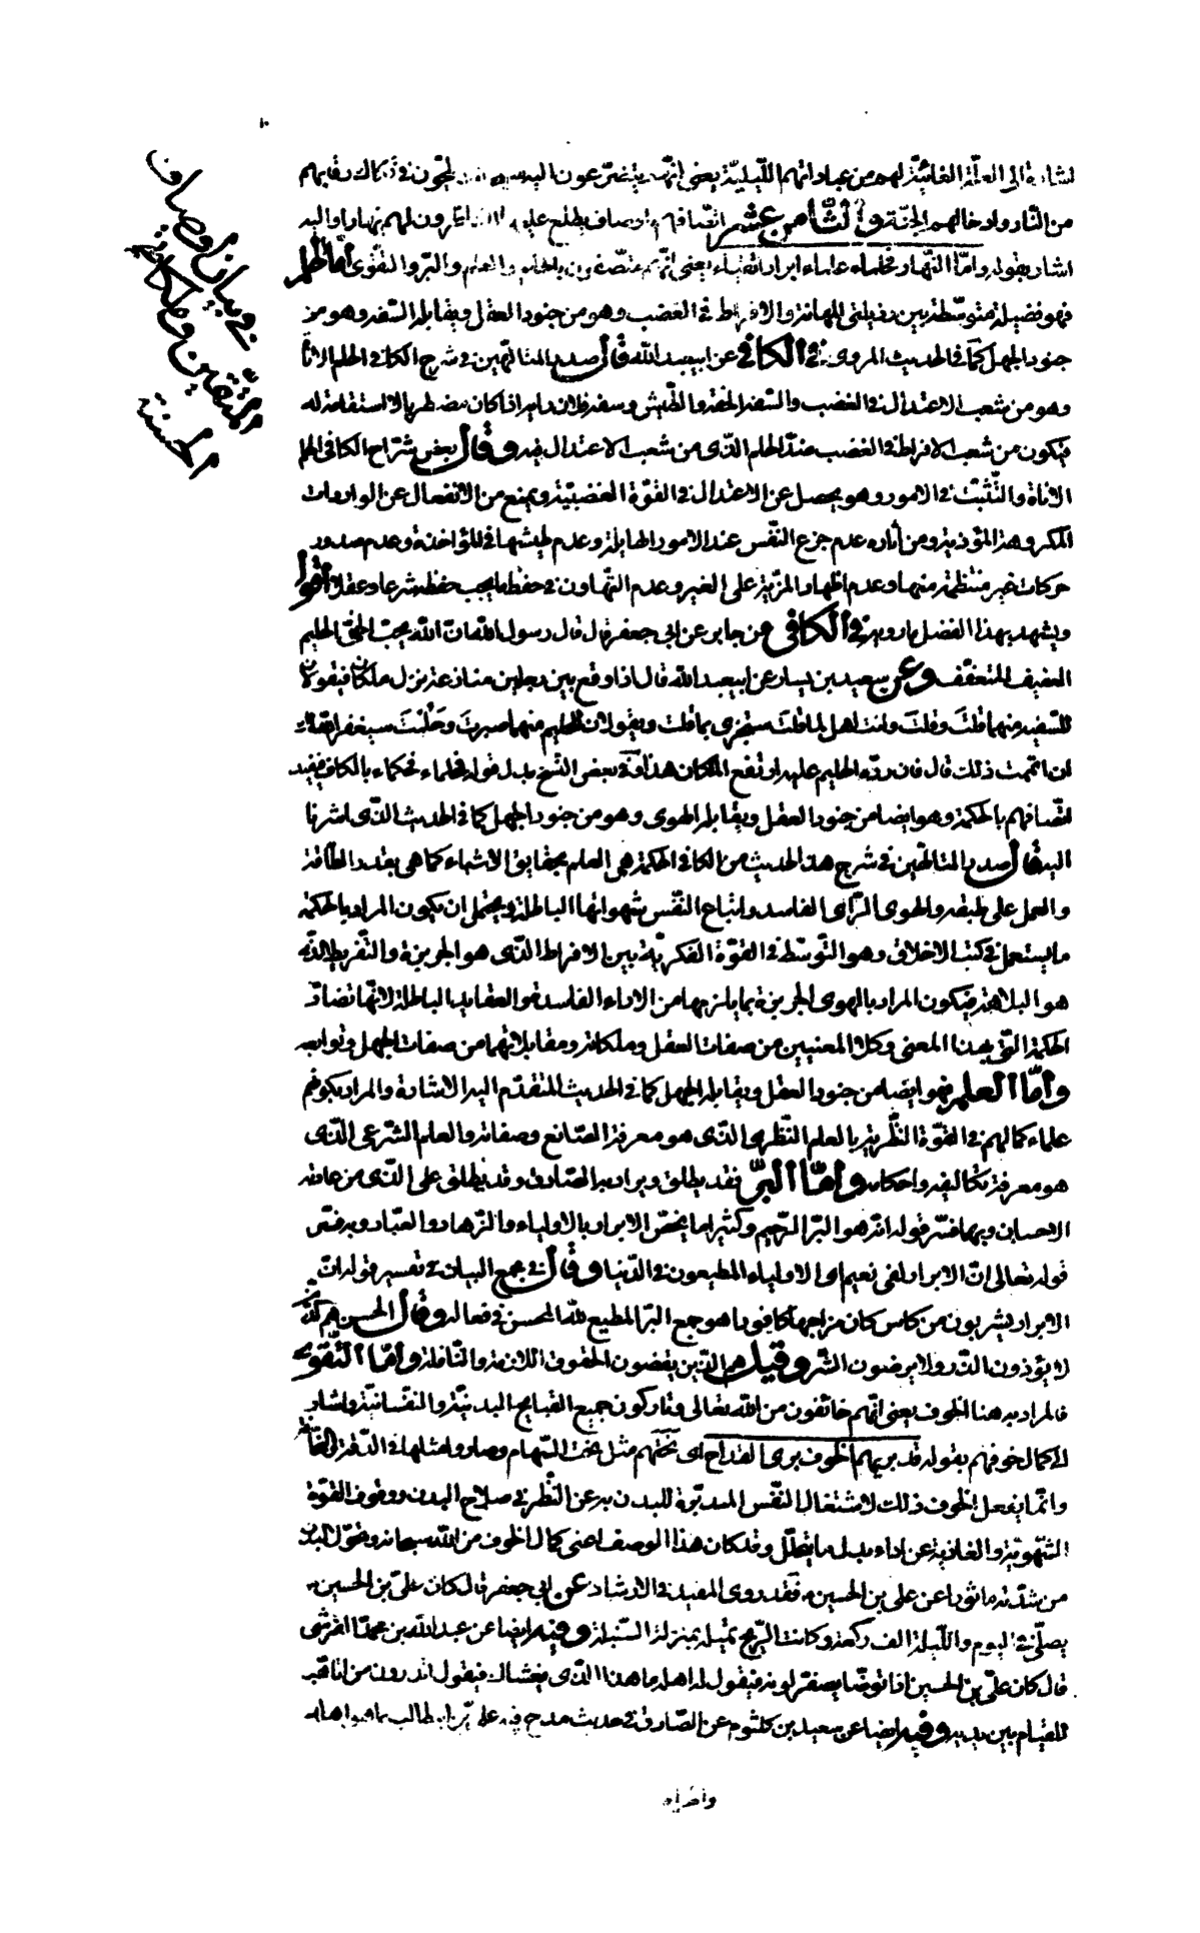 في بيان اوصاف
المتقين وملكاتهم
الحسنة
اشارة الى العلّة الغائيّة لهم من عباداتهم الليليّة يعنى انّهم يتضرّعون اليه في فكاك رقابهم
من النّار وادخالهم الجنّة والثّامن عشر اتّصافهم باوصاف يطلع عليها الناظرون لهم نهارا واليه
اشار بقوله وامّا النّهار فحلماء علماء ابرار اتقياء يعنى انّهم متّصفون بالحلم والعلم والبرّ والتقوى امّا الحلم
فهو فضيلة متوسّطة بين رذيلتى المهانة والافراط في الغضب وهو من جنود العقل ويقابله السّفه وهو من
جنود الجهل كما في الحديث المروى في الكافي عن ابيعبد الله قال صدر المتالّهين في شرح الكافي الحلم الاناة
وهو من شعب الاعتدال في الغضب والسّفه الخفة والطّيش وسفه فلان رايه اذا كان مضطربا لا استقامة له
فيكون من شعب الافراط في الغضب ضدّ الحلم الّذى من شعب الاعتدال فيه وقال بعض شرّاح الكافي الحلم
الاناة والتّثبّت في الامور وهو يحصل عن الاعتدال في القوّة الغضبيّة ويمنع من الانفعال عن الواردات
المكروهة المؤذية ومن آثاره عدم جزع النّفس عند الامور الهايلة وعدم طيشها في المؤاخذة وعدم صدور
حركات غير منتظمة منها وعدم اظهار المزيّة على الغير وعدم التّهاون في حفظ ما يجب حفظه شرعا وعقلا اقول
ويشهد بهذا الفضل ما رويه في الكافي عن جابر عن ابي جعفر قال قال رسول الله ان الله يحبّ الحيّ الحليم
العفيف المتعفّف وعن سعيد بن يسار عن ابيعبد الله قال اذا وقع بين رجلين منازعة نزل ملكان فيقولان
للسّفيه منهما قلت وقلت وانت اهل لما قلت ستجزى بما قلت ويقولان للحليم منهما صبرت وحلمت سيغفر الله لك
ان اتممت ذلك قال فان ردّ الحليم عليه ارتفع الملكان هذا وفي بعض النّسخ بدل قوله فحلماء فحكماء بالكاف فيفيد
اتّصافهم بالحكمة وهو ايضا من جنود العقل ويقابله الهوى وهو من جنود الجهل كما في الحديث الّذى اشرنا
اليه قال صدر المتالّهين في شرح هذا الحديث من الكافي الحكمة هى العلم بحقايق الاشياء كما هى بقدر الطّاقة
والعمل على طبقه والهوى الرّأى الفاسد واتباع النّفس شهواتها الباطلة ويحتمل ان يكون المراد بالحكمة
ما يستعمل في كتب الاخلاق وهو التّوسّط في القوّة الفكريّة بين الافراط الّذى هو الجربزة والتّفريط الّذى
هو البلاهة فيكون المراد بالهوى الجربزة بما يلزمها من الاراء الفاسدة والعقايد الباطلة لانّها تضادّ
الحكمة الّتى بهذا المعنى وكلا المعنيين من صفات العقل وملكاته ومقابلاتهما من صفات الجهل وتوابعه
وامّا العلم فهو ايضا من جنود العقل ويقابله الجهل كما في الحديث المتقدّم اليه الاشارة والمراد بكونهم
علماء كمالهم في القوّة النّظريّة بالعلم النّظرى الّذى هو معرفة الصّانع وصفاته والعلم الشّرعى الّذى
هو معرفة تكاليفه واحكامه وامّا البرّ فقد يطلق ويراد به الصّادق وقد يطلق على الّذى من عادته
الاحسان وبهما فسّر قوله انّه هو البرّ الرّحيم وكثيرا ما يخصّ الابرار بالاولياء والزّهاد والعبّاد وبه فسّر
قوله تعالى انّ الابرار لفى نعيم اى الاولياء المطيعون في الدّنيا وقال في مجمع البيان في تفسير قوله انّ
الابرار يشربون من كاس كان مزاجها كافورا هو جمع البرّ المطيع لله المحسن في فعاله وقال الحسن هم الّذين
لا يؤذون الذّر ولا يرضون الشّر وقيل هم الّذين يقضون الحقوق اللازمة والنّافلة وامّا التّقوى
فالمراد به هنا الخوف يعنى انّهم خائفون من الله تعالى وتاركون جميع القبايح البدنيّة والنفسانيّة واشار
الى كمال خوفهم بقوله قد بريهم الخوف برى القداح اى نحتهم مثل نحت السّهام وصاروا مثلها في الدّقة والنحافة
وانّما يفعل الخوف ذلك لاشتغال النّفس المدبّرة للبدن به عن النّظر في صلاح البدن ووقوف القوّة
الشّهويّة والغاذية عن اداء بدل ما يتحلّل وقد كان هذا الوصف اعنى كمال الخوف من الله سبحانه ونحول البدن
من شدّته ماثورا عن على بن الحسين فقد روى المفيد في الارشاد عن ابي جعفر قال كان علىّ بن الحسين
يصلّى في اليوم واللّيلة الف ركعة وكانت الرّيح تميله بمنزلة السّنبلة وفيه ايضا عن عبد الله بن محمد القرشى
قال كان علىّ بن الحسين اذا توضّا يصفرّ لونه فيقول له اهله ما هذا الّذى يغشاك فيقول اتدرون من اتاهّب
للقيام بين يديه وفيه ايضا عن سعيد بن كلثوم عن الصّادق في حديث مدح فيه علىّ بن ابيطالب بما هو اهله
واطراه